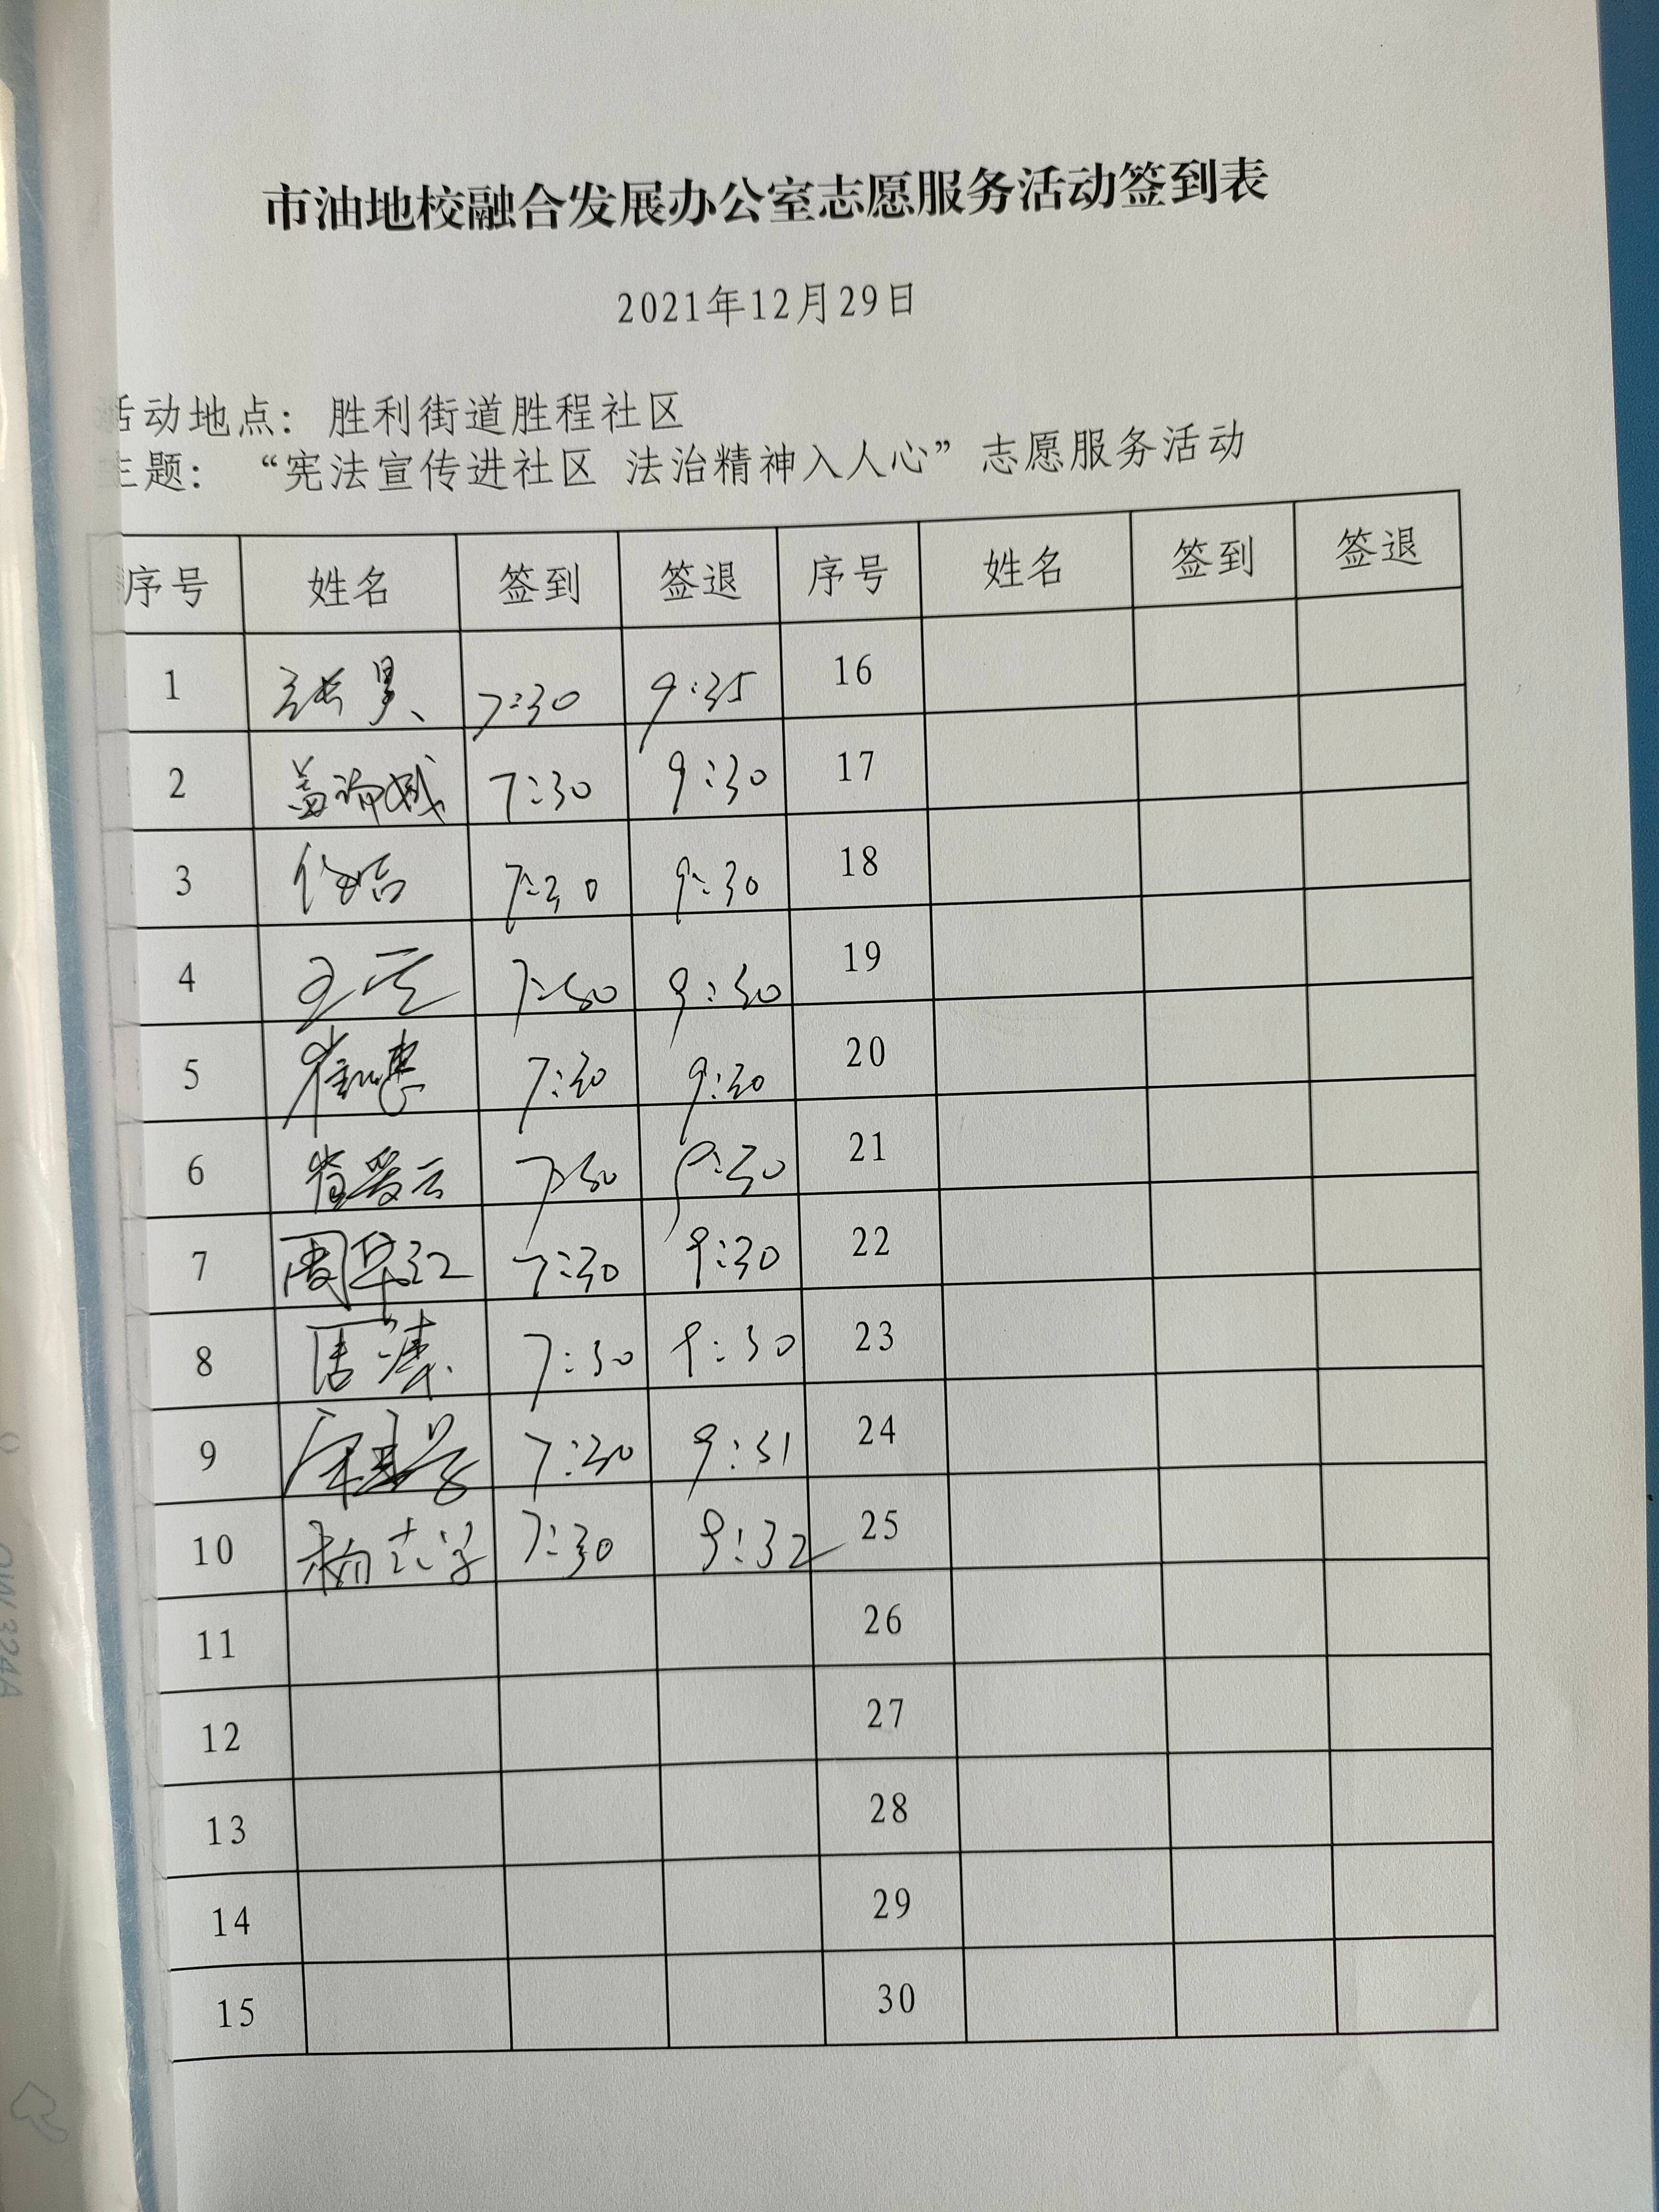 市油地校融合发展办公室志愿服务活动签到表
2021年12月29日
活动地点： 胜利街道胜程社区
主题： “宪法宣传进社区 法治精神入人心”志愿服务活动
序号 姓名 签到 签退 序号 姓名 签到 签退
1 7:30 9:35 16
2 7:30 9:30 17
3 7:30 9:30 18
4 7:30 9:30 19
5 7:30 9:30 20
6 崔爱云 7:30 9:30 21
7 周华江 7:30 9:30 22
8 7:30 9:30 23
9 7:30 9:31 24
10 7:30 9:32 25
11 26
12 27
13 28
14 29
15 30